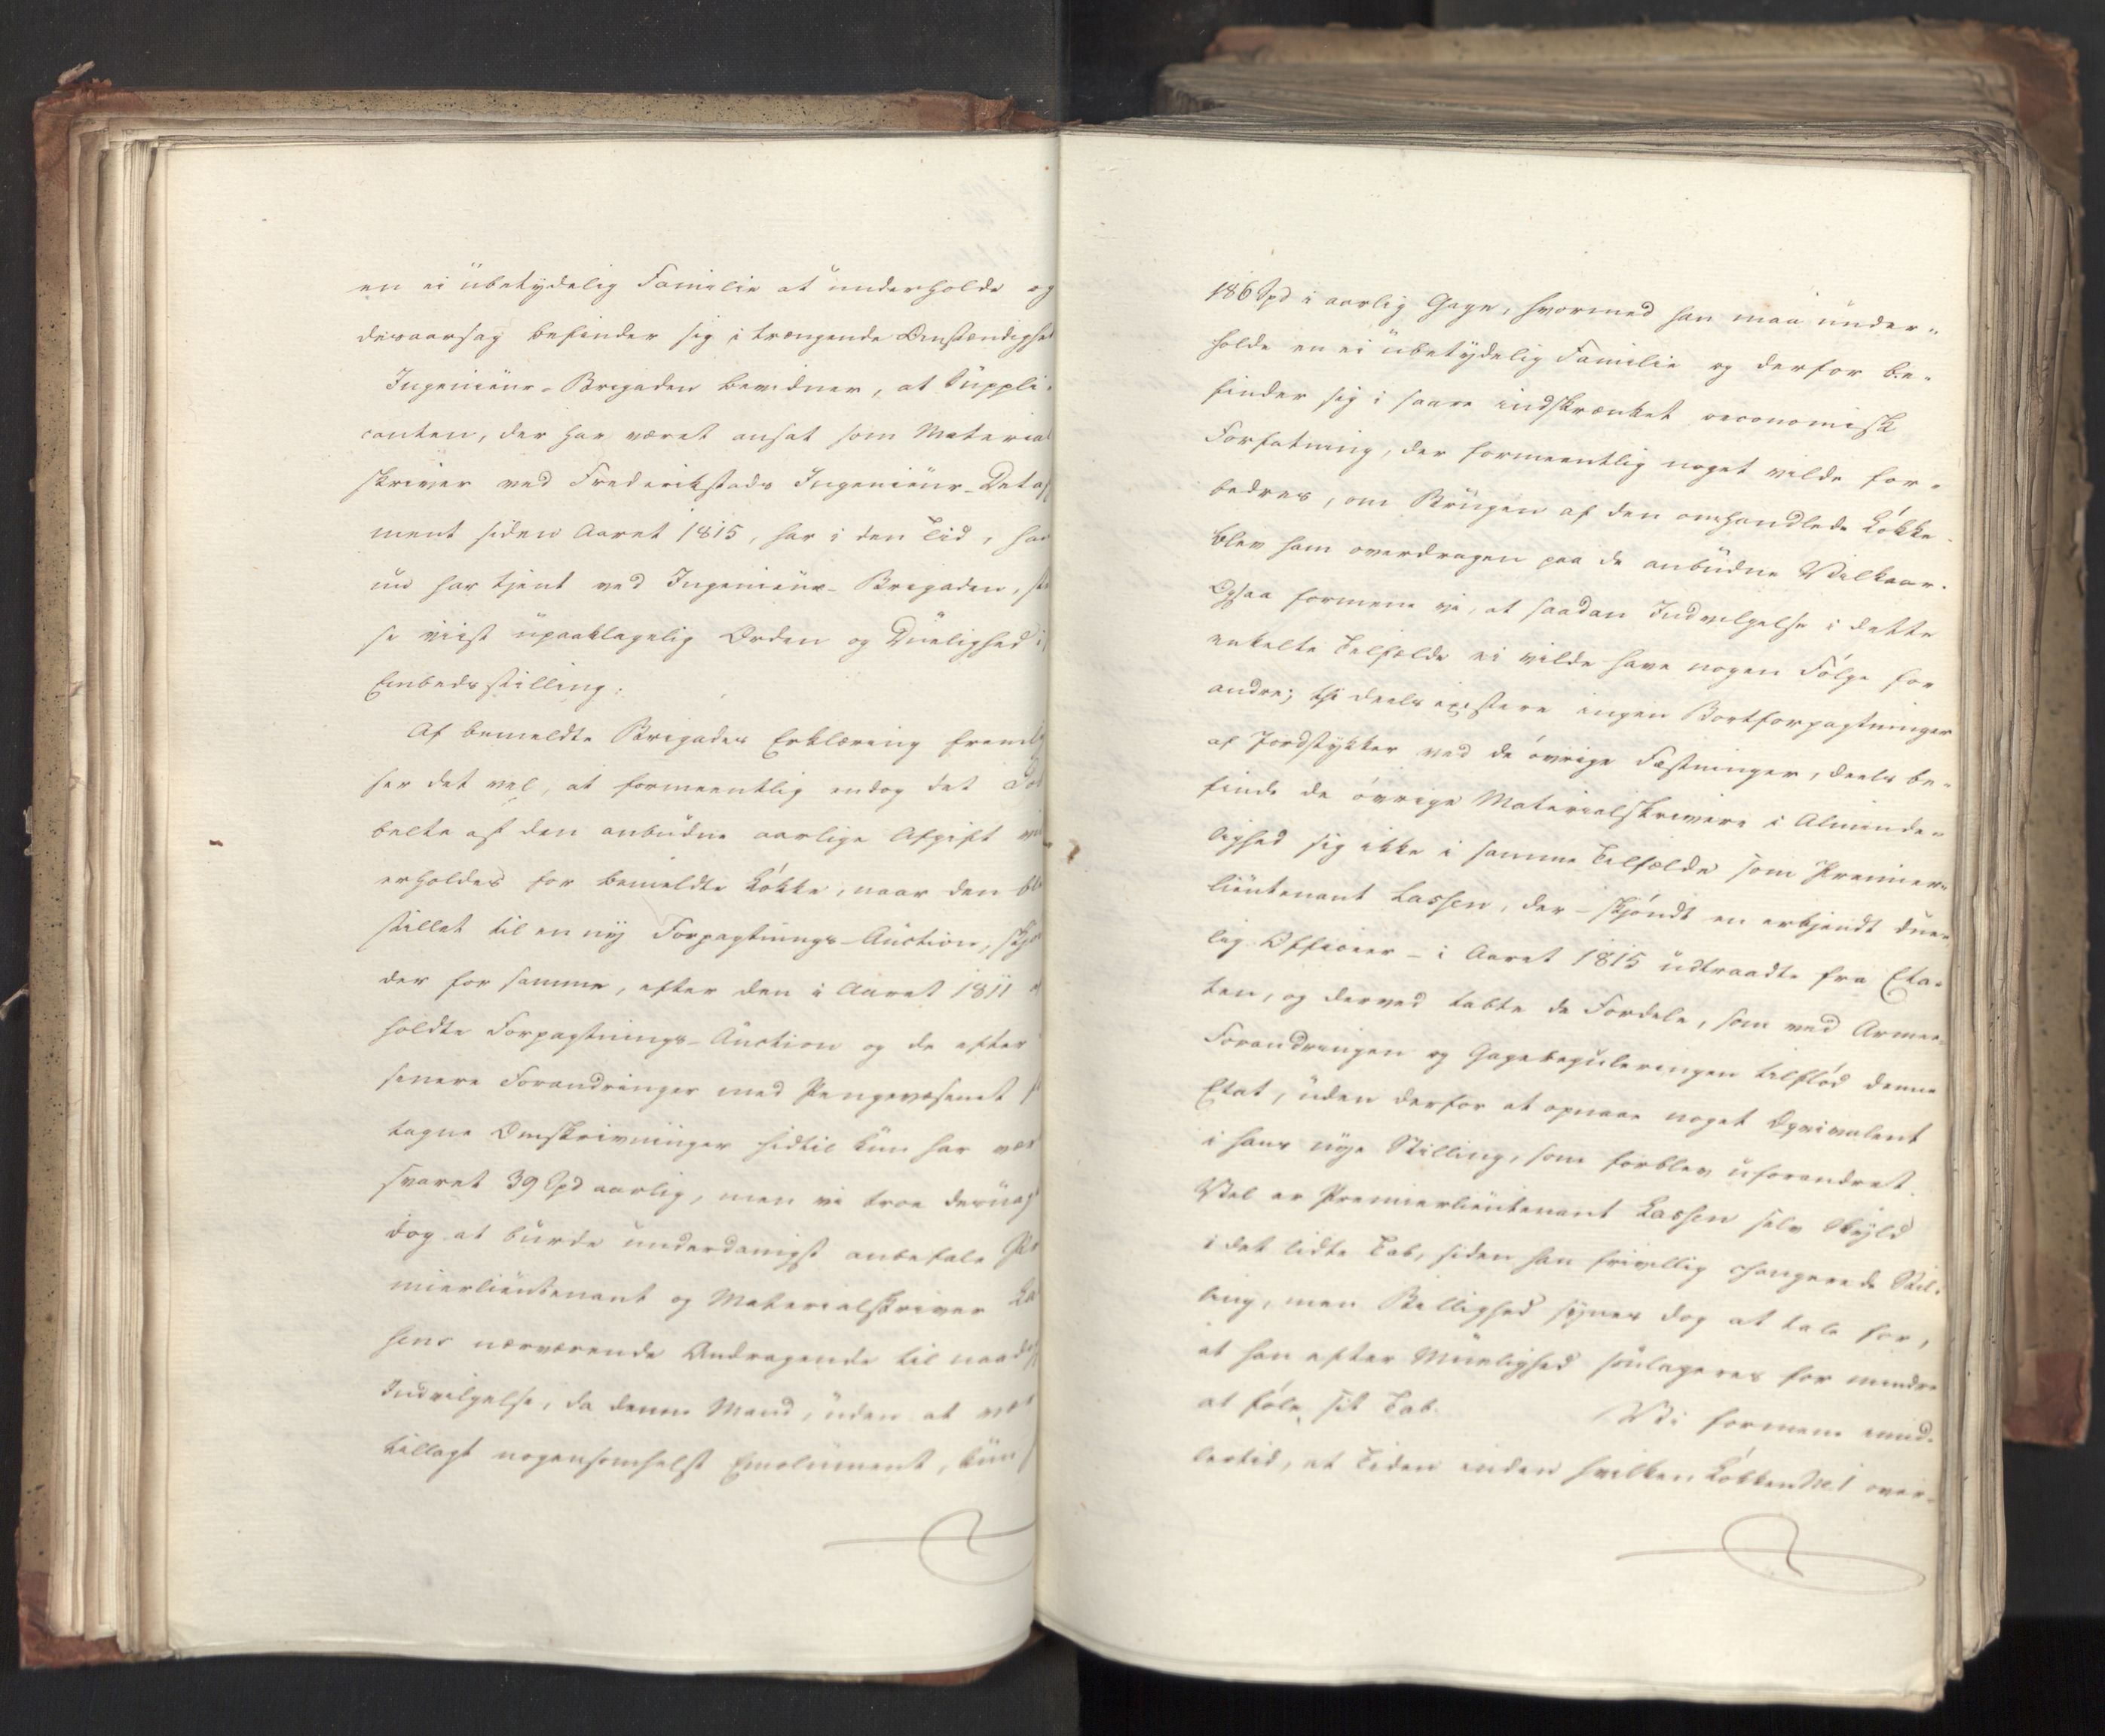 en ei ubetydelig Familie at underholde og
desaarsag befinder sig i trængende Omstændighed
Ingenieur-Brigaden bevidner, at Suppli-
canten, der har været ansat som Material
skriver ved Frederikstads Ingenieur-Detasch
ment siden Aaret 1815, har i den Tid, han
nu har tjent ved Ingenieur-Brigaden, ste
se viist upaaklagelig Orden og Duelighed i
Embedsstilling.
Af bemeldte Brigades Erklæring fremly
ser det vel, at formeentlig endog det Dob
belte af den anbudne aarlige Afgift vil
erholdes for bemeldte Løkke, naar den ble
stillet til en ny Forpagtnings-Auction, skjøn
der for samme, efter den i Aaret 1811 af
holdte Forpagtnings-Auction og de efter
senere Forandringer med Pengevæsenet fo
tagne Omskrivninger hidtil kun har vær
svaret 39 Spd aarlig, men vi troe desuagt
dog at burde underdanigst anbefale Pre
mierlieutenant og Materialskriver Las
sens nærværende Andragende til naadig
Indvilgelse, da denne Mand, uden at vær
tillagt nogensomhelst Emolument, kun h
186 Spd i aarlig Gage, hvormed han maa under-
holde en ei ubetydelig Familie og derfor be-
finder sig i saare indskrænket oeconomisk
Forfatning, der formeentlig noget vilde for-
bedres, om Brugen af den omhandlede Løkke
blev ham overdragen paa de anbudne Vilkaar.
Ogsaa formene vi, at saadan Indvilgelse i dette
enkelte Tilfælde ei vilde have nogen Følge for
andre; thi deels existere ingen Bortforpagtninger
af Jordstykker ved de øvrige Fæstninger, deels be-
finde de øvrige Materialskrivere i Alminde-
lighed sig ikke i samme Tilfælde som Premier-
lieutenant Lassen, der - skjøndt en erkjendt due-
lig Officier - i Aaret 1815 udtraadte fra Eta-
ten, og derved tabte de Fordele, som ved Armee-
Forandringen og Gagereguleringen tilflød denne
Etat, uden derfor at opnaae noget Eqvivalent
i hans nye Stilling, som forblev uforandret.
Vel er Premierlieutenant Lassen selv Skyld
i det lidte Tab, siden han frivillig changerede Stil-
ling, men Billighed synes dog at tale for,
at han efter Muelighed soulageres for mindre
at føle sit Tab. Vi formene imid-
lertid, at Tiden inden hvilken Løkken No 1 over-